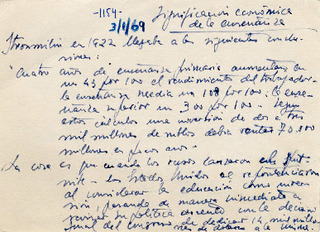 -1154-
Significación económica
3/1/69 de la enseñanza
Strumilin en 1922 llegaba a las siguientes conclu-
siones:
"Cuatro años de enseñanza primaria aumentan en
un 43 por 100 el rendimiento del trabajador
la enseñanza media un 108 por 100. La ense-
ñanza superior un 300 por 100. Según
estos cálculos una inversión de dos a tres
mil millones de rublos debía rentar 70.000
millones en pocos años.
La cosa es que cuando los rusos lanzaron el Sput-
nik - los Estados Unidos
al considerar la educación como inver-
sión, pasando de manera inmediata a
su política docente con la decisión
del congreso de dedicar mil millo-
nes de dólares a la